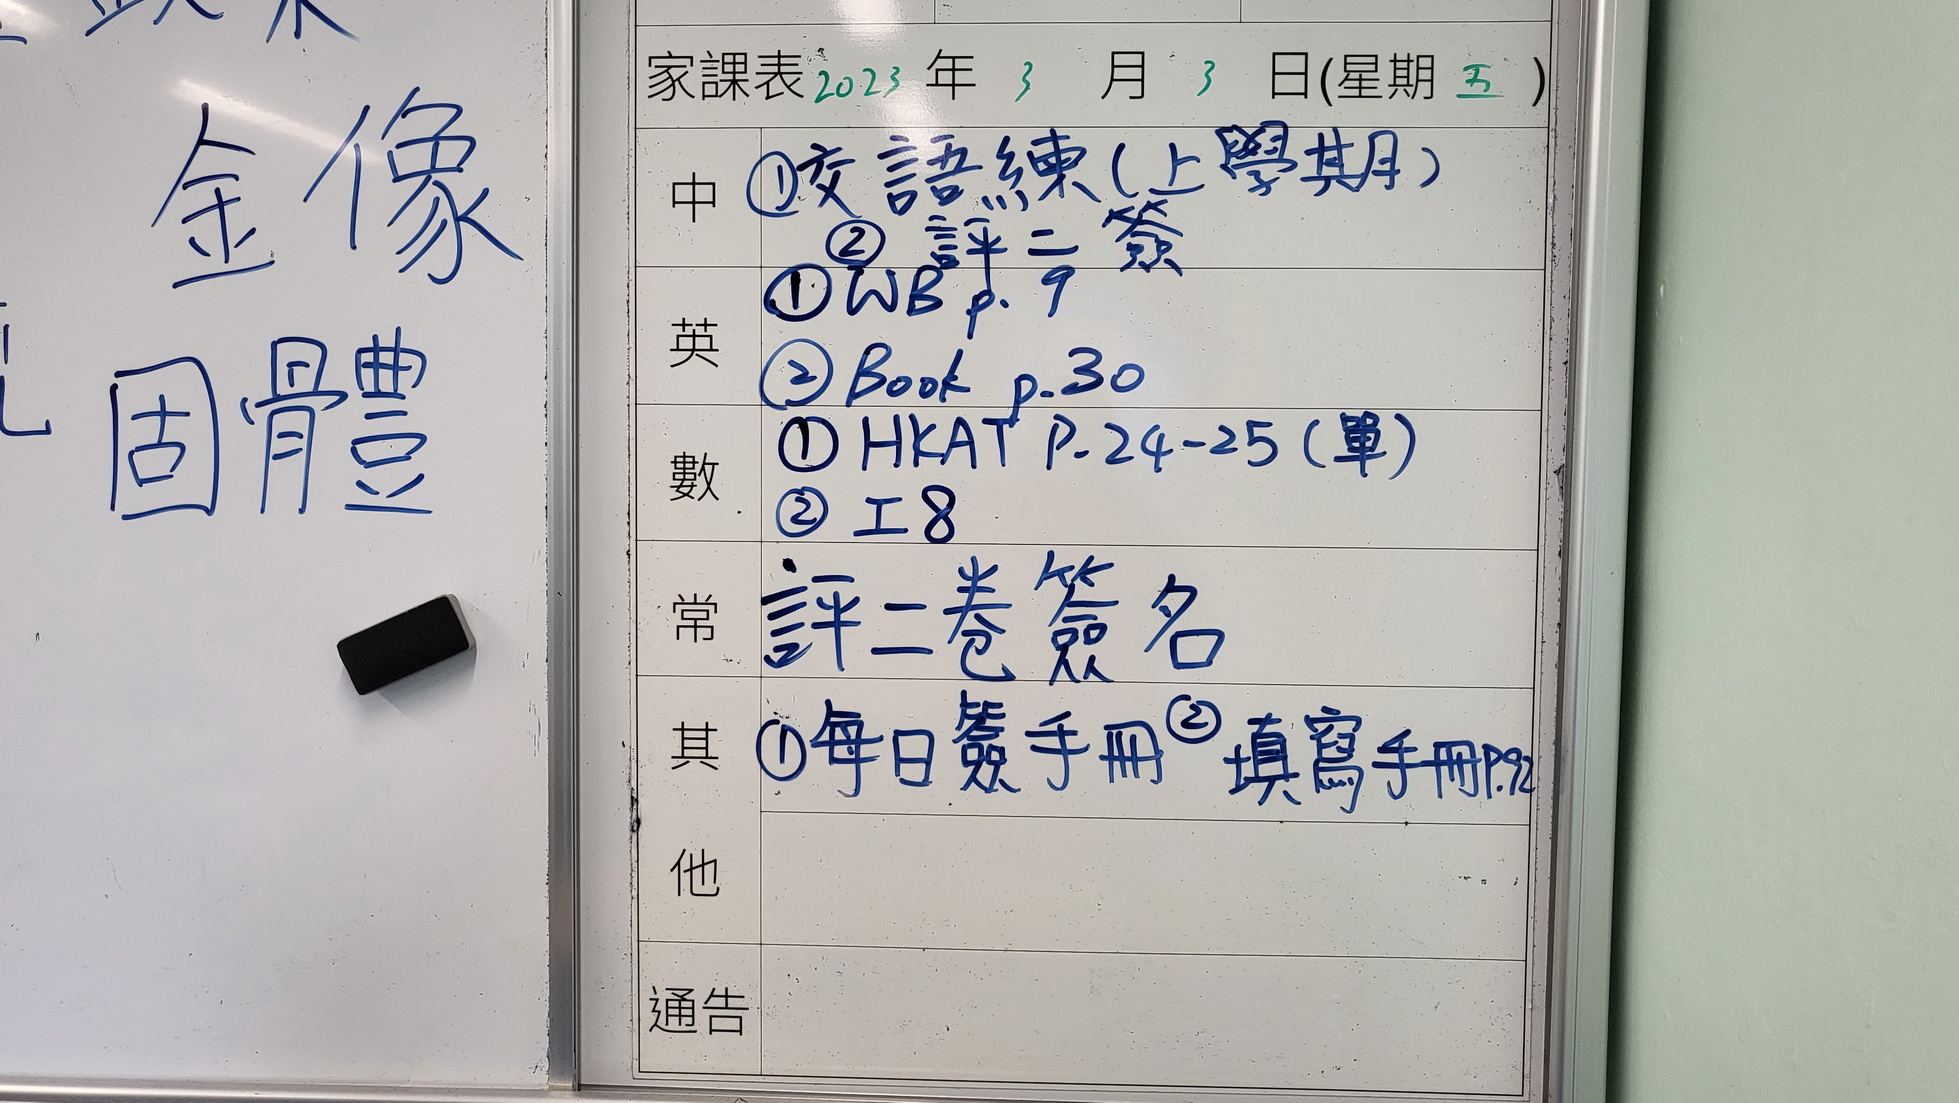 金像
固體
家課表 2023 年 3 月 3 日(星期 五 )
中 ①交語練(上學期)
② 評二簽
英 ①WB p.9
② Book p.30
數 ① HKAT P.24-25(單)
② 工8
常 評二卷簽名
其 ①每日簽手冊 ②填寫手冊P.92
他
通告